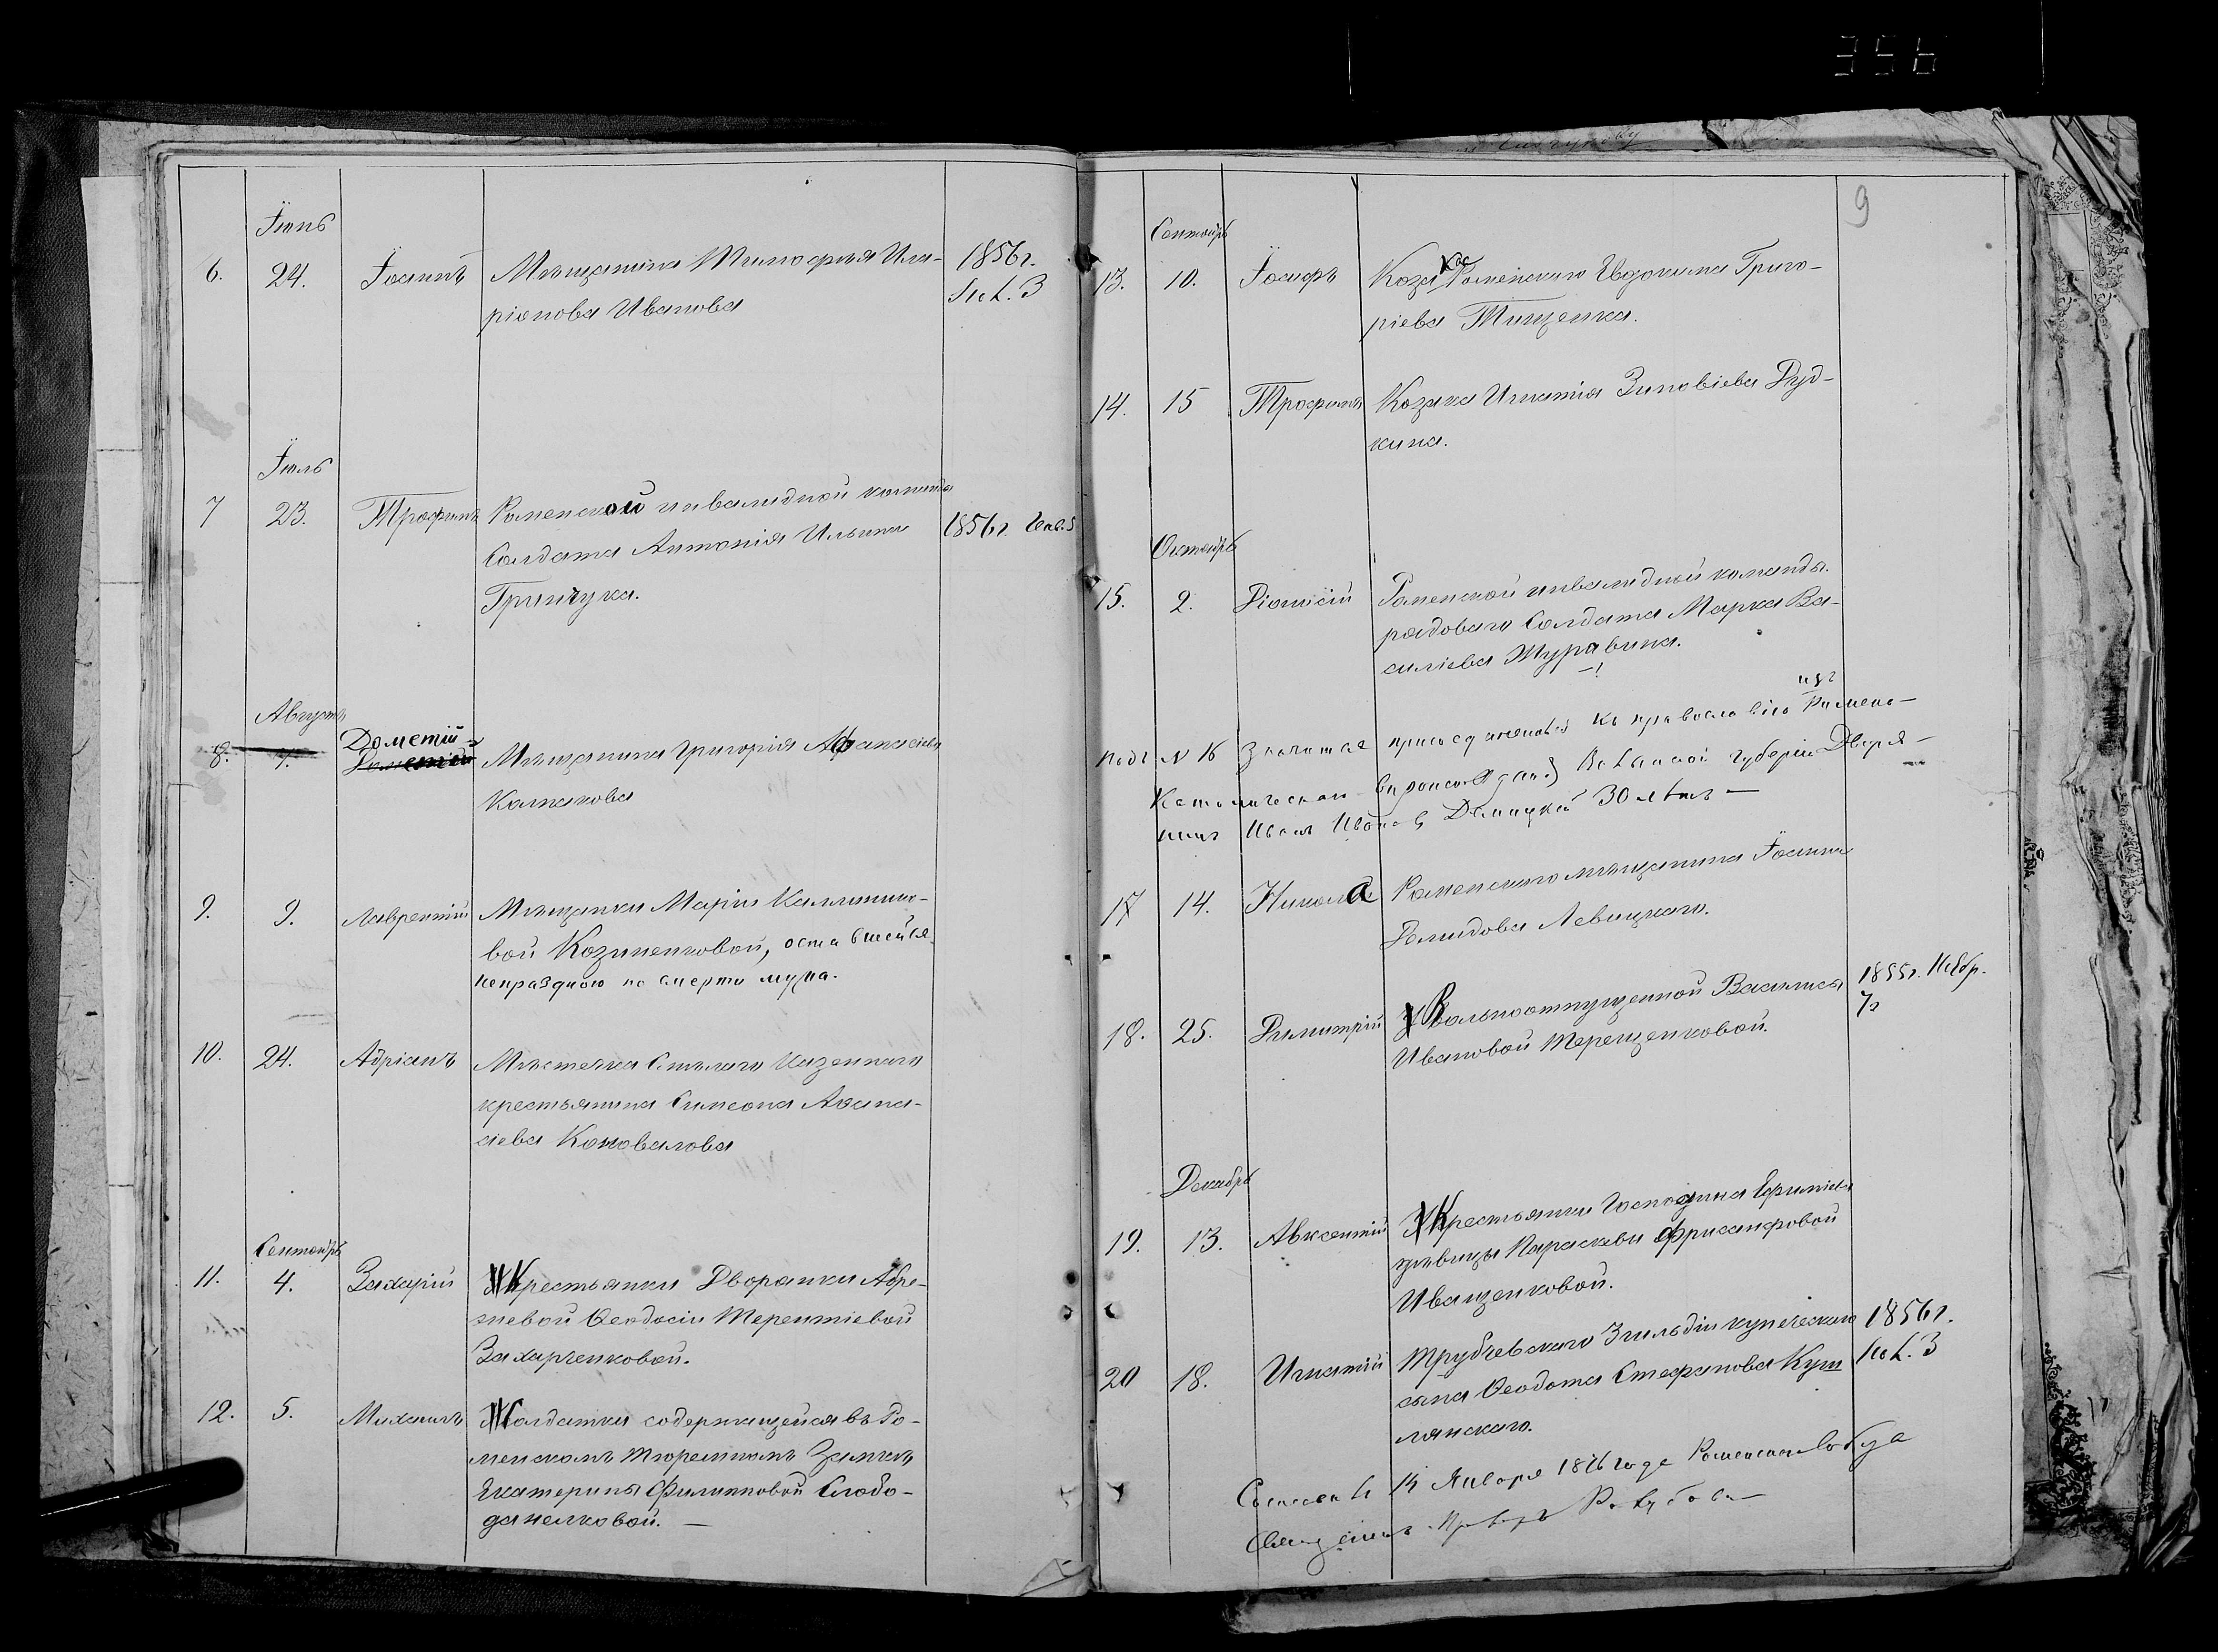 356
Іюнь
6. 24. Іоаннъ Мѣщанина Тимофея Ила-
ріонова Иванова
1856 г.
Янв. 3
Іюль
7 23. Трофимъ Роменской инвалидной команды
Солдата Антонія Ильина
Гринчука.
1856 г. Генв. 5
Августъ
8. 7. Дометій
Дометій Мѣщанина Григорія Афанасіева
Калмакова
9. 9. Лаврентій Мѣщанки Маріи Каллинико-
вой Козиненковой, оставшейся
непраздною по смерти мужа.
10. 24. Адріанъ Мѣстечка Смѣлаго Казеннаго
крестьянина Симеона Аѳана-
сіева Коновалова
Сентябрь
11. 4. Захарій Крестьянки Дворянки
Ѳеодосіи Терентіевой
Захарченковой.
12. 5. Михаилъ Солдатки содержащейся въ Ро-
менскомъ тюремномъ Замкѣ
Екатерины Филипповой Слобо-
данелковой. —
9
Сентябрь
13. 10. Іосифъ Козака Роменскаго Евдокима Григо-
ріева Тищенка.
14. 15 Трофимъ Козака Игнатія Зиновіева Руд-
кина.
Октябрь
15. 2. Діонисій Роменской инвалидной команды
рядоваго Солдата Марка Ва-
силіева Журавина.
изъ
Подъ № 16 Значится присоединеный къ православію Римско-
Католическаго губерніи Дворя-
нинъ Иванъ 30 лѣтъ —
17 14. Никола Роменскаго мѣщанина Іоанна
Демидова Левицкаго.
18. 25. Димитрій Вольноотпущенной Василисы
Ивановой Терещенковой.
1855 г. Нбр.
7
Декабрь
19. 13. Авксентій Крестьянки Господина
дѣвицы Параскевы Фрисанфовой
Иващенковой.
20 18. Игнатій Трубчевскаго 3 гильдіи купеческаго
сына Ѳеодота Стефанова Куш
лянскаго.
1856 г.
Нов. 3
14 Января года Роменскаго Собора